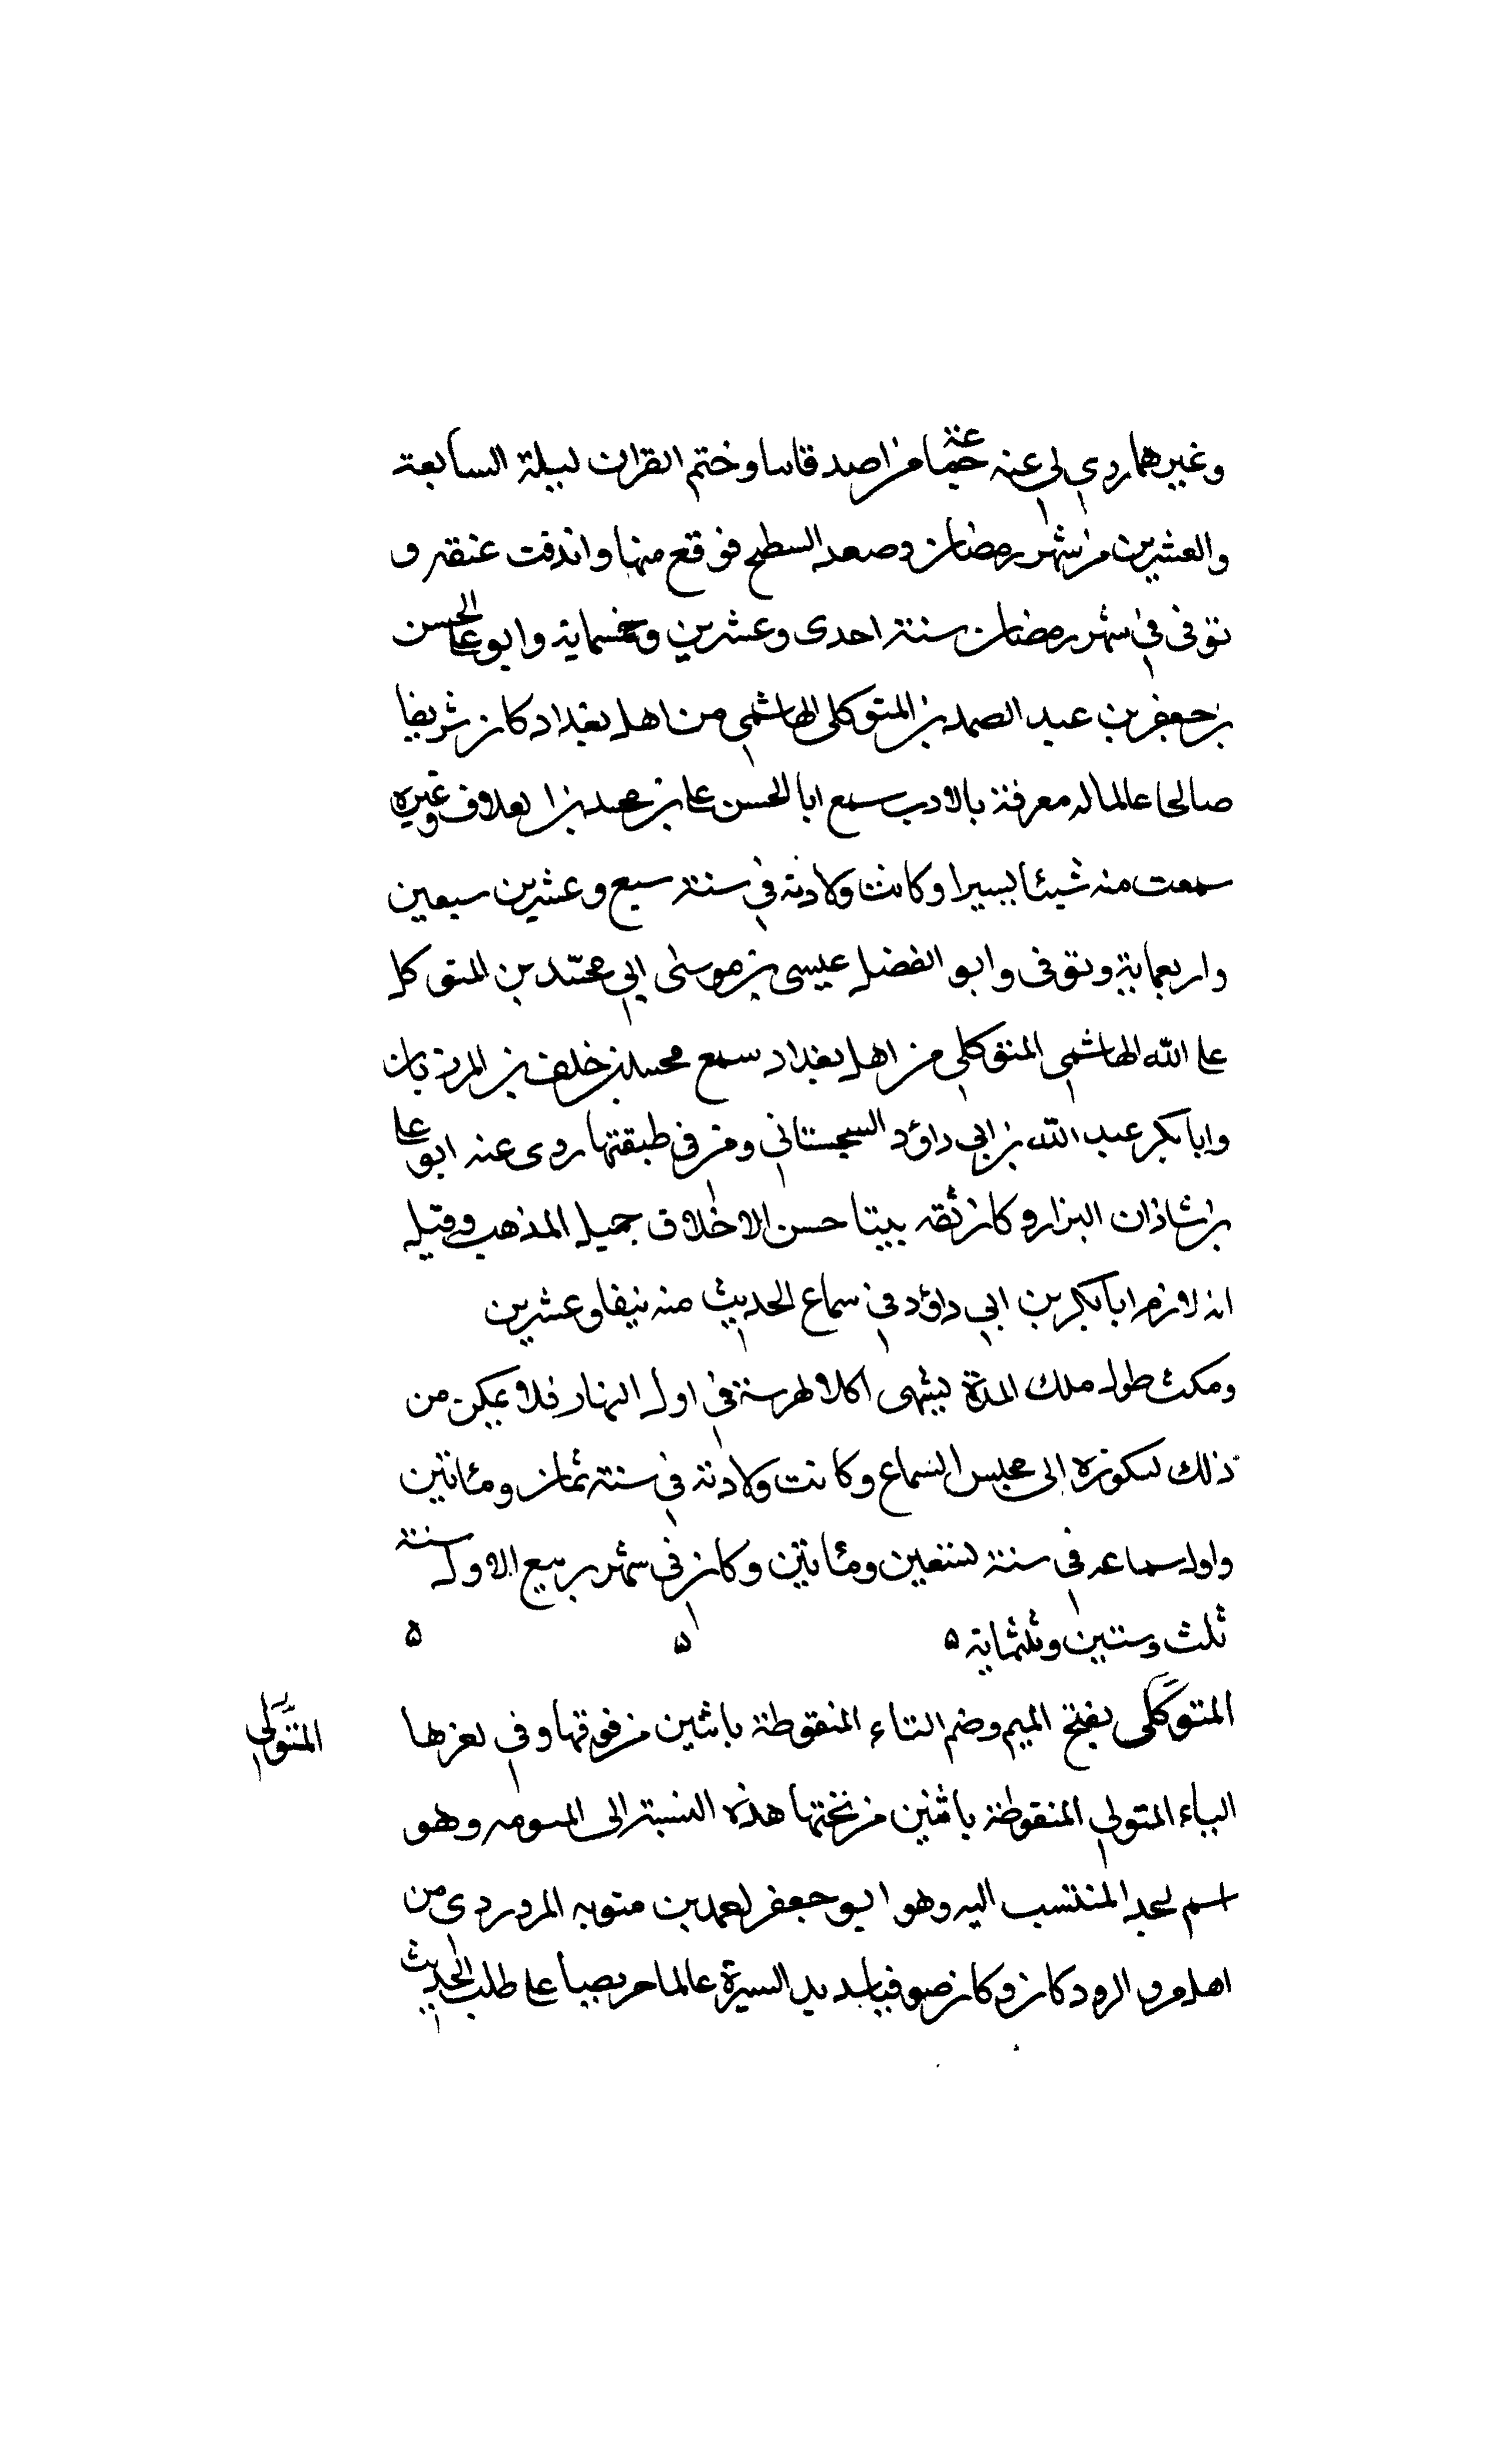 وغيرهما روى لي عنه جماعة من اصدقاىنا وختم القران ليلة السابعة
والعشرين من شهر رمضان وصعد السطح فوقع منها واندقت عنقه و
توفى في شهر رمضان سنة احدى وعشرين وخمسماية وابو الحسن على
بن جعفر بن عبد الصمد بن المتوكلى الهاشمي من اهل بغداد كان شريفا
صالحا عالما له معرفة بالادب سمع ابا الحسن على بن محمد بن العلاف وغيره
سمعت منه شيئا يسيرا وكانت ولادته في سنة سبع وعشرين سبعين
واربعماية وتوفى وابو الفضل عيسى بن موسى ابي محمد بن المتوكل
على الله الهاشمي المتوكلي من اهل بغداد سمع محمد بن خلف بن المرزبان
وابا بكر عبد الله بن ابي داؤد السجستاني ومن في طبقتها روى عنه ابو على
بن شاذان البزار وكان ثقه بيتا حسن الاخلاق جميل المذهب وقيل
انه لازم ابا بكر بن ابي داؤد في سماع الحديث منه نيفا وعشرين
ومكث طول ملك المدة يشهى اكلا لهرسة في اول النهار فلا يمكن من
ذلك لبكوره الى مجلس السماع وكانت ولادته في سنة ثمان ومئاتين
واول سماعه في سنة تسعين ومئاتين وكان في شهر ربيع الاول سنة
ثلث وستين وثلثماية ه ه ه
المتوكلى بفتح الميم وضم التاء المنقوطة باثنين من فوقها وفي اخرها
المتولي
الياء المتولي المنقوطة باثنين من تختها هذه النسبة الى المىومه وهو
اسم لجد المنتسب اليه وهو ابو جعفر احمد بن متويه المروردى من
اهل مرو الرود كان وكان صوفيا سديد السيرة عالما حريصا على طلب الحديث